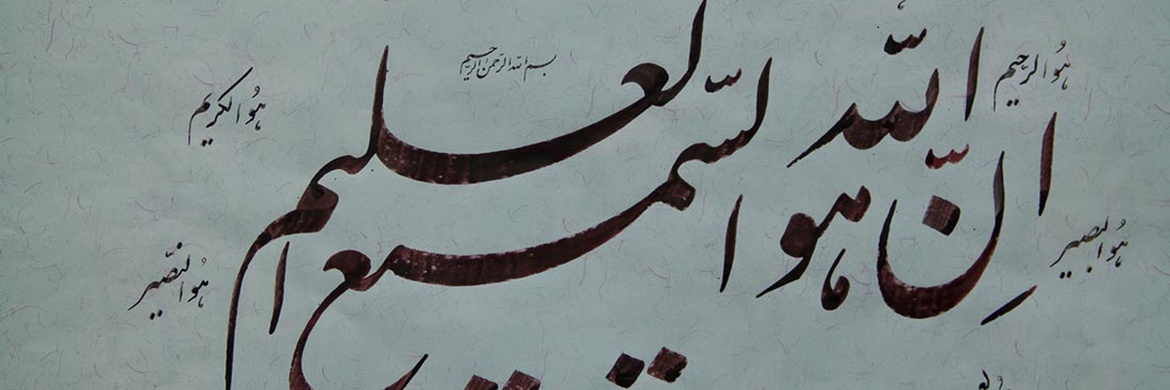 بسم الله الرحمن الرحیم
هُو الرحیم
هُو الکریم
انّ اللّه هو السّمیع العلیم
هُو البصیر
هُو النّصیر